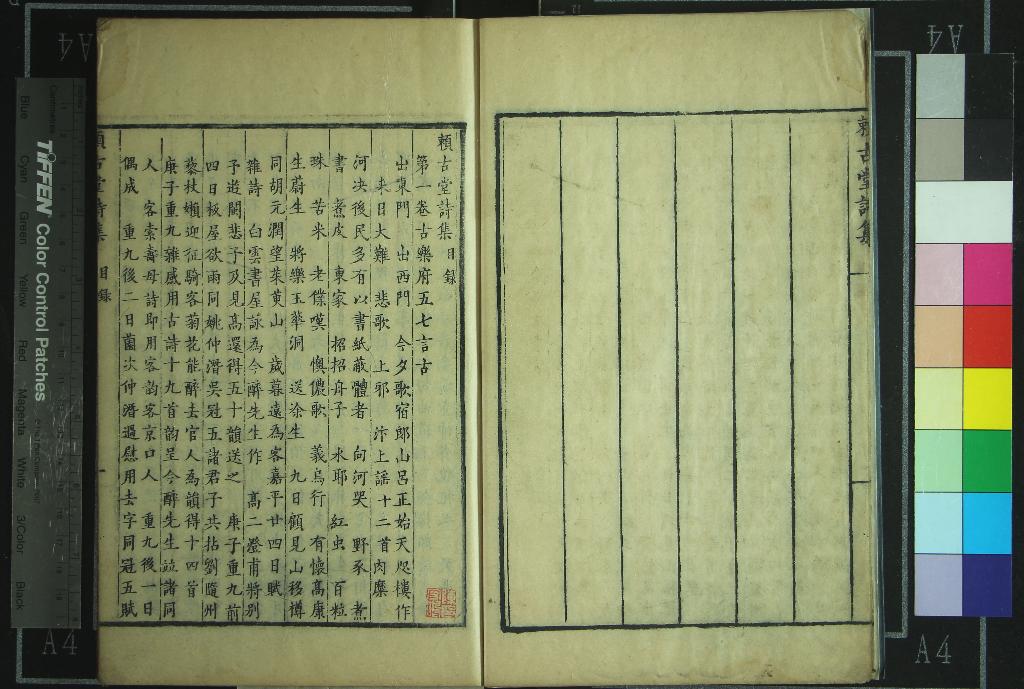 賴古堂詩集
賴古堂詩集 目錄
第一卷古樂府五七言古
出東門 出西門 今夕歌宿郎山呂正始天咫樓作
來日大難 悲歌 上邪 汴上謠十二首肉糜
河決後民多有以書紙蔽體者 向河哭 野豕 煮
書 煮皮 東家 招招舟子 水耶 紅虫 百粒
珠 苦米 老僕嘆 懊儂歌 義烏行 有懷高康
生蔚生 將樂玉華洞 送涂生 九日顧見山移樽
同胡元潤望茱萸山 歲暮遠為客嘉平廿四日賦
雜詩 白雲書屋詠為今醉先生作 高二澄甫將別
予遊閩悲予及見高還得五十韻送之 庚子重九前
四日板屋欲雨阿姚仲潛吳冠五諸君子共拈劉隨州
藜杖嬾迎征騎客菊花能醉去官人為韻得十四首
庚子重九雜感用古詩十九首韵呈今醉先生並諸同
人 客索壽母詩即用客韵客京口人 重九後一日
偶成 重九後二日菌次仲潛過慰用去字同冠五賦
賴古堂詩集 目錄 一
TIFFEN Color Control Patches
Blue Cyan Green Yellow Red Magenta White 3/Color Black
A4
A4
A4
A4